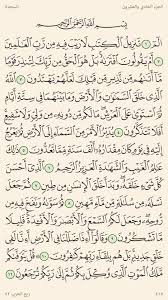 الجزء الحادي والعشرون السجدة
بِسْمِ ٱللَّهِ ٱلرَّحْمَٰنِ ٱلرَّحِيمِ
الٓمٓ ١ تَنزِيلُ ٱلْكِتَٰبِ لَا رَيْبَ فِيهِ مِن رَّبِّ ٱلْعَٰلَمِينَ
٢ أَمْ يَقُولُونَ ٱفْتَرَىٰهُ بَلْ هُوَ ٱلْحَقُّ مِن رَّبِّكَ لِتُنذِرَ
قَوْمًا مَّآ أَتَىٰهُم مِّن نَّذِيرٍ مِّن قَبْلِكَ لَعَلَّهُمْ يَهْتَدُونَ ٣
ٱللَّهُ ٱلَّذِى خَلَقَ ٱلسَّمَٰوَٰتِ وَٱلْأَرْضَ وَمَا بَيْنَهُمَا فِى سِتَّةِ أَيَّامٍ
ثُمَّ ٱسْتَوَىٰ عَلَى ٱلْعَرْشِ مَا لَكُم مِّن دُونِهِۦ مِن وَلِىٍّ وَلَا شَفِيعٍ
أَفَلَا تَتَذَكَّرُونَ ٤ يُدَبِّرُ ٱلْأَمْرَ مِنَ ٱلسَّمَآءِ إِلَى ٱلْأَرْضِ
ثُمَّ يَعْرُجُ إِلَيْهِ فِى يَوْمٍ كَانَ مِقْدَارُهُۥٓ أَلْفَ سَنَةٍ مِّمَّا تَعُدُّونَ
٥ ذَٰلِكَ عَٰلِمُ ٱلْغَيْبِ وَٱلشَّهَٰدَةِ ٱلْعَزِيزُ ٱلرَّحِيمُ ٦ ٱلَّذِىٓ
أَحْسَنَ كُلَّ شَىْءٍ خَلَقَهُۥ وَبَدَأَ خَلْقَ ٱلْإِنسَٰنِ مِن طِينٍ
٧ ثُمَّ جَعَلَ نَسْلَهُۥ مِن سُلَٰلَةٍ مِّن مَّآءٍ مَّهِينٍ ٨ ثُمَّ سَوَّىٰهُ
وَنَفَخَ فِيهِ مِن رُّوحِهِۦ وَجَعَلَ لَكُمُ ٱلسَّمْعَ وَٱلْأَبْصَٰرَ وَٱلْأَفْـِٔدَةَ
قَلِيلًا مَّا تَشْكُرُونَ ٩ وَقَالُوٓا۟ أَءِذَا ضَلَلْنَا فِى ٱلْأَرْضِ أَءِنَّا
لَفِى خَلْقٍ جَدِيدٍ بَلْ هُم بِلِقَآءِ رَبِّهِمْ كَٰفِرُونَ ١٠ قُلْ يَتَوَفَّىٰكُم
مَّلَكُ ٱلْمَوْتِ ٱلَّذِى وُكِّلَ بِكُمْ ثُمَّ إِلَىٰ رَبِّكُمْ تُرْجَعُونَ ١١
٤١٥ ربع الحزب ٤٢